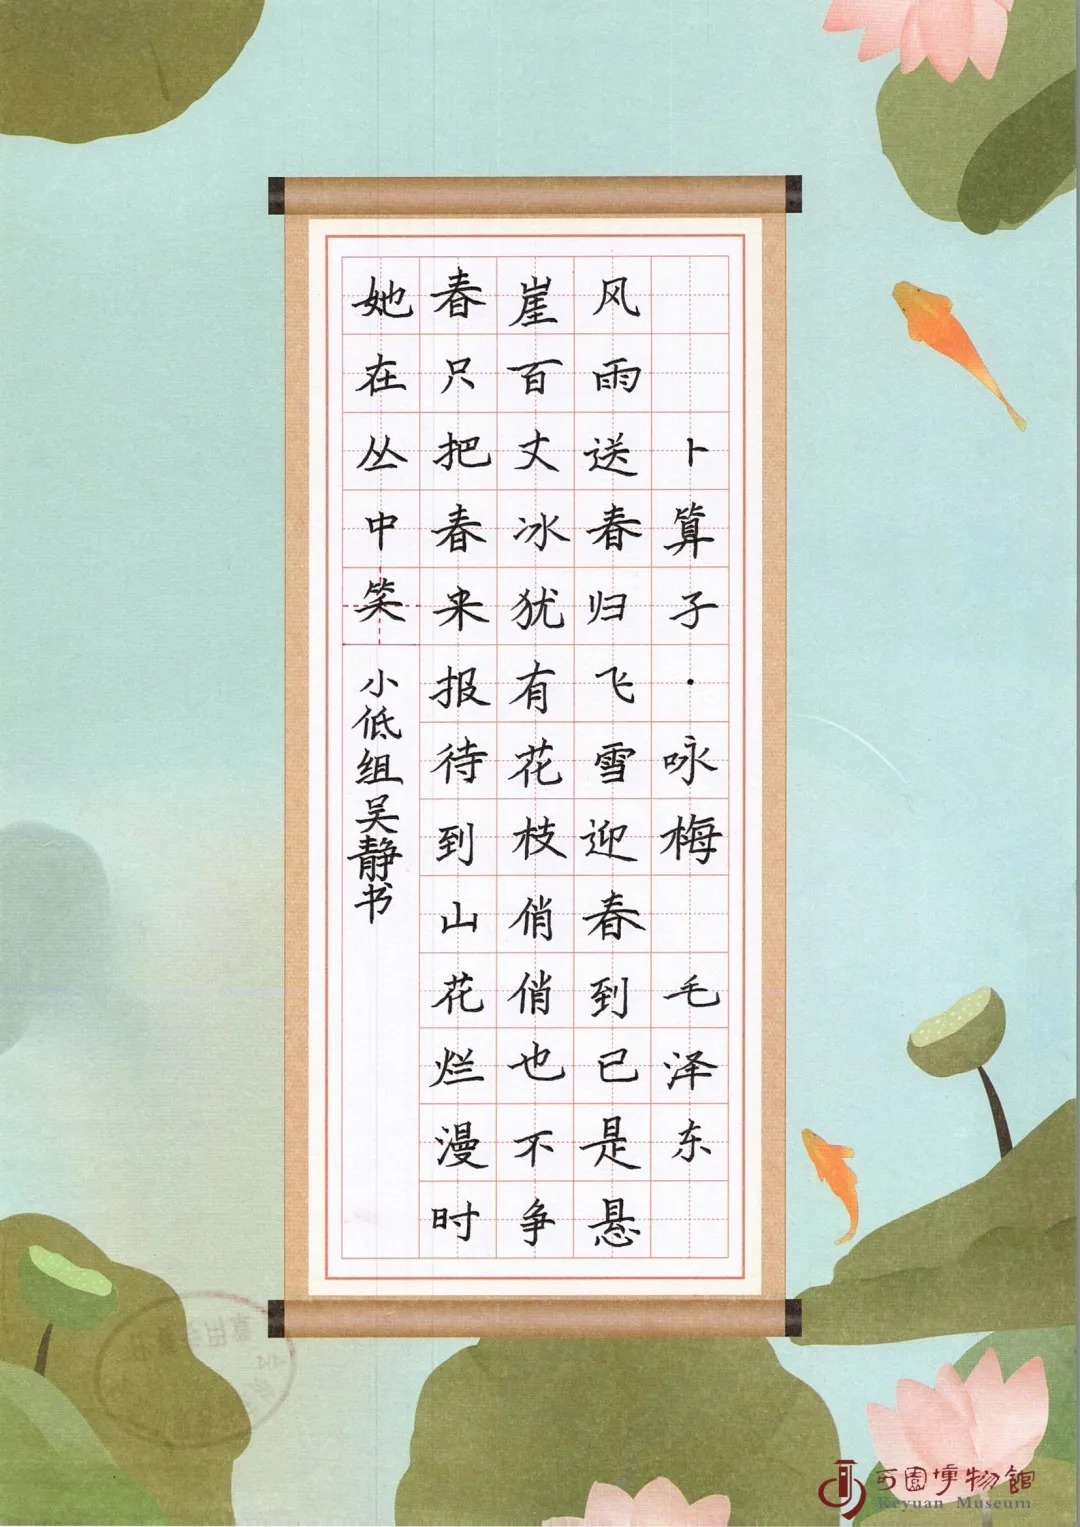 卜算子·咏梅 毛泽东
风雨送春归飞雪迎春到已是悬
崖百丈冰犹有花枝俏俏也不争
春只把春来报待到山花烂漫时
她在丛中笑
小低组吴静书
可园博物馆
Keyuan Museum